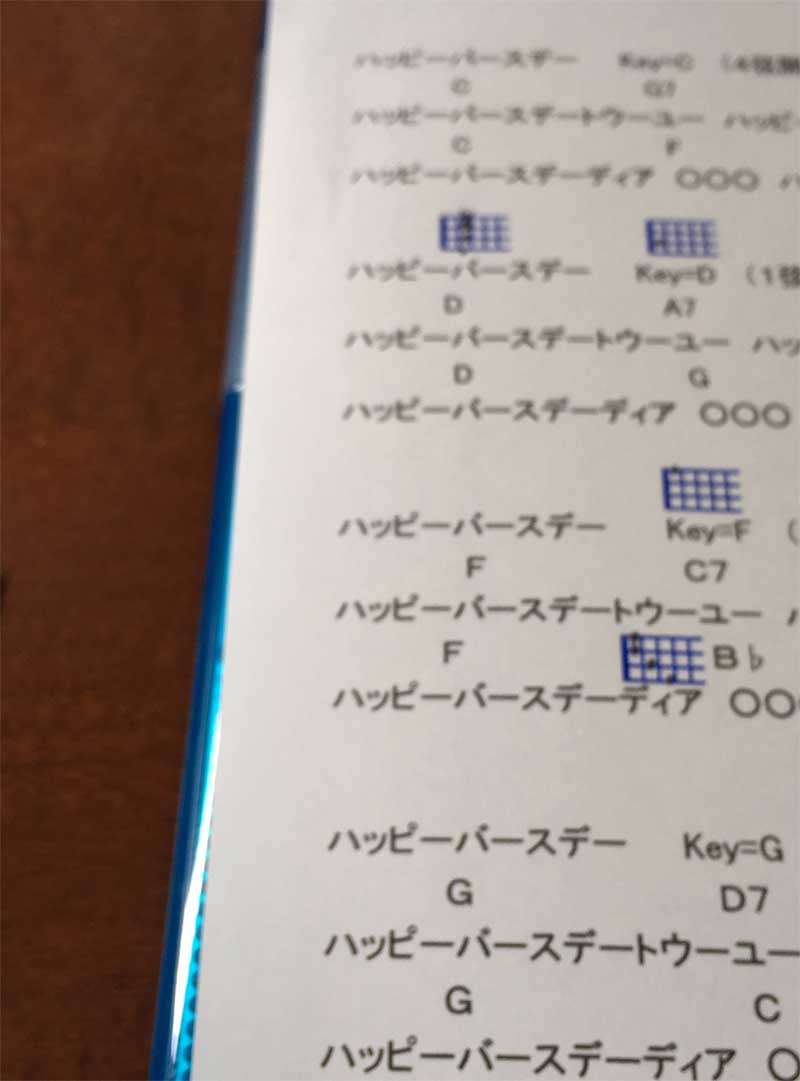 ハッピーバースデー Key=C （4弦
C G7
ハッピーバースデートゥーユー ハッピ
C F
ハッピーバースデーディア 〇〇〇 ハ
ハッピーバースデー Key=D （1弦
D A7
ハッピーバースデートウーユー ハッ
D G
ハッピーバースデーディア 〇〇〇
ハッピーバースデー Key=F （
F C7
ハッピーバースデートウーユー ハ
F B♭
ハッピーバースデーディア 〇〇
ハッピーバースデー Key=G
G D7
ハッピーバースデートウーユー
G C
ハッピーバースデーディア 〇